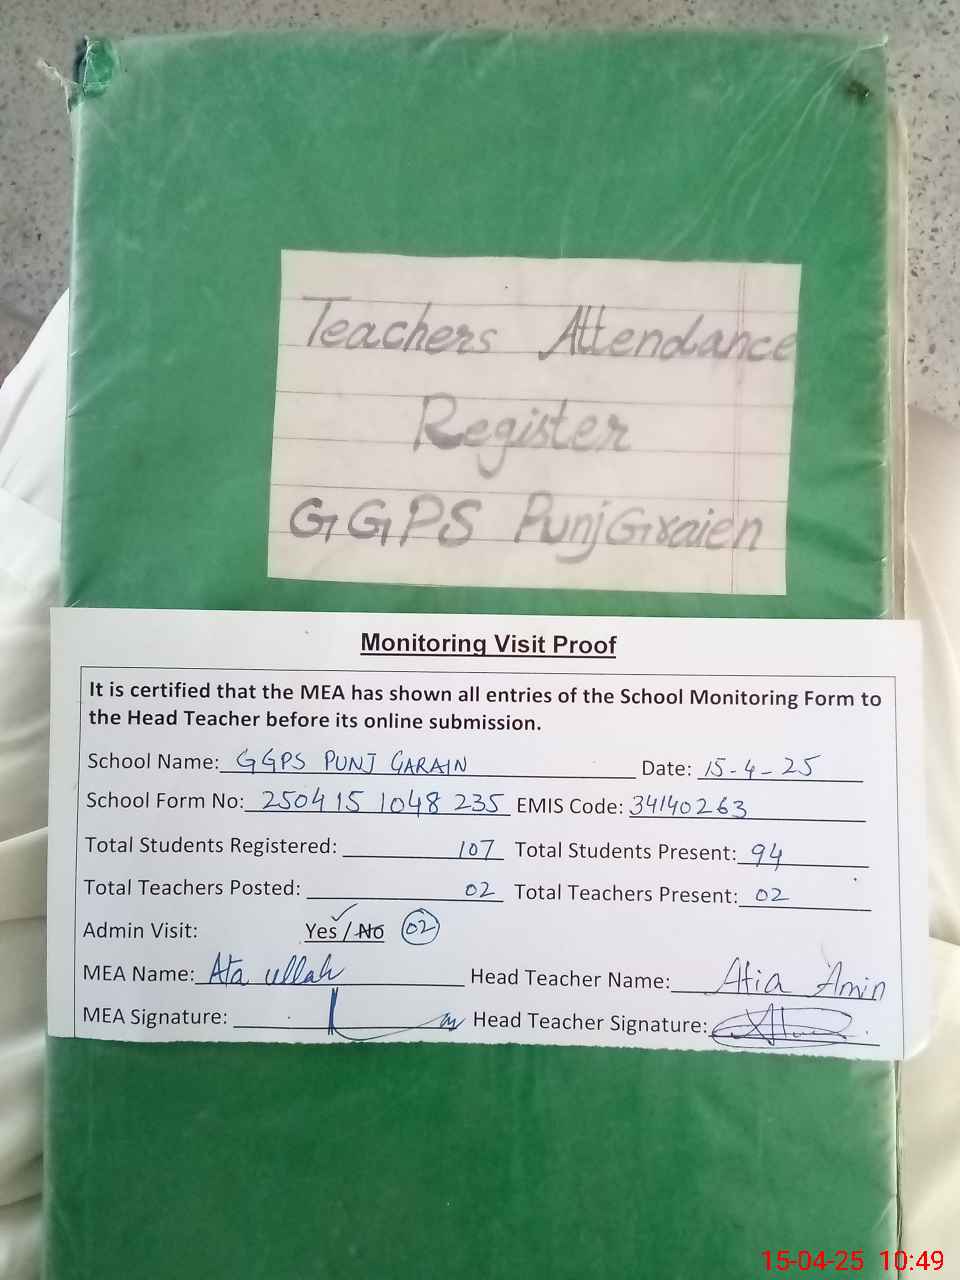 Teachers Attendance
Register
GGPS PunjGraien
Monitoring Visit Proof
It is certified that the MEA has shown all entries of the School Monitoring Form to
the Head Teacher before its online submission.
School Name: GGPS PUNJ GARAIN Date: 15-4-25
School Form No: 250415 1048 235 EMIS Code: 34140263
Total Students Registered: 107 Total Students Present: 94
Total Teachers Posted: 02 Total Teachers Present: 02
Admin Visit: Yes / No 02
MEA Name: Ata ullah Head Teacher Name: Atia Amin
MEA Signature: Head Teacher Signature:
15-04-25 10:49